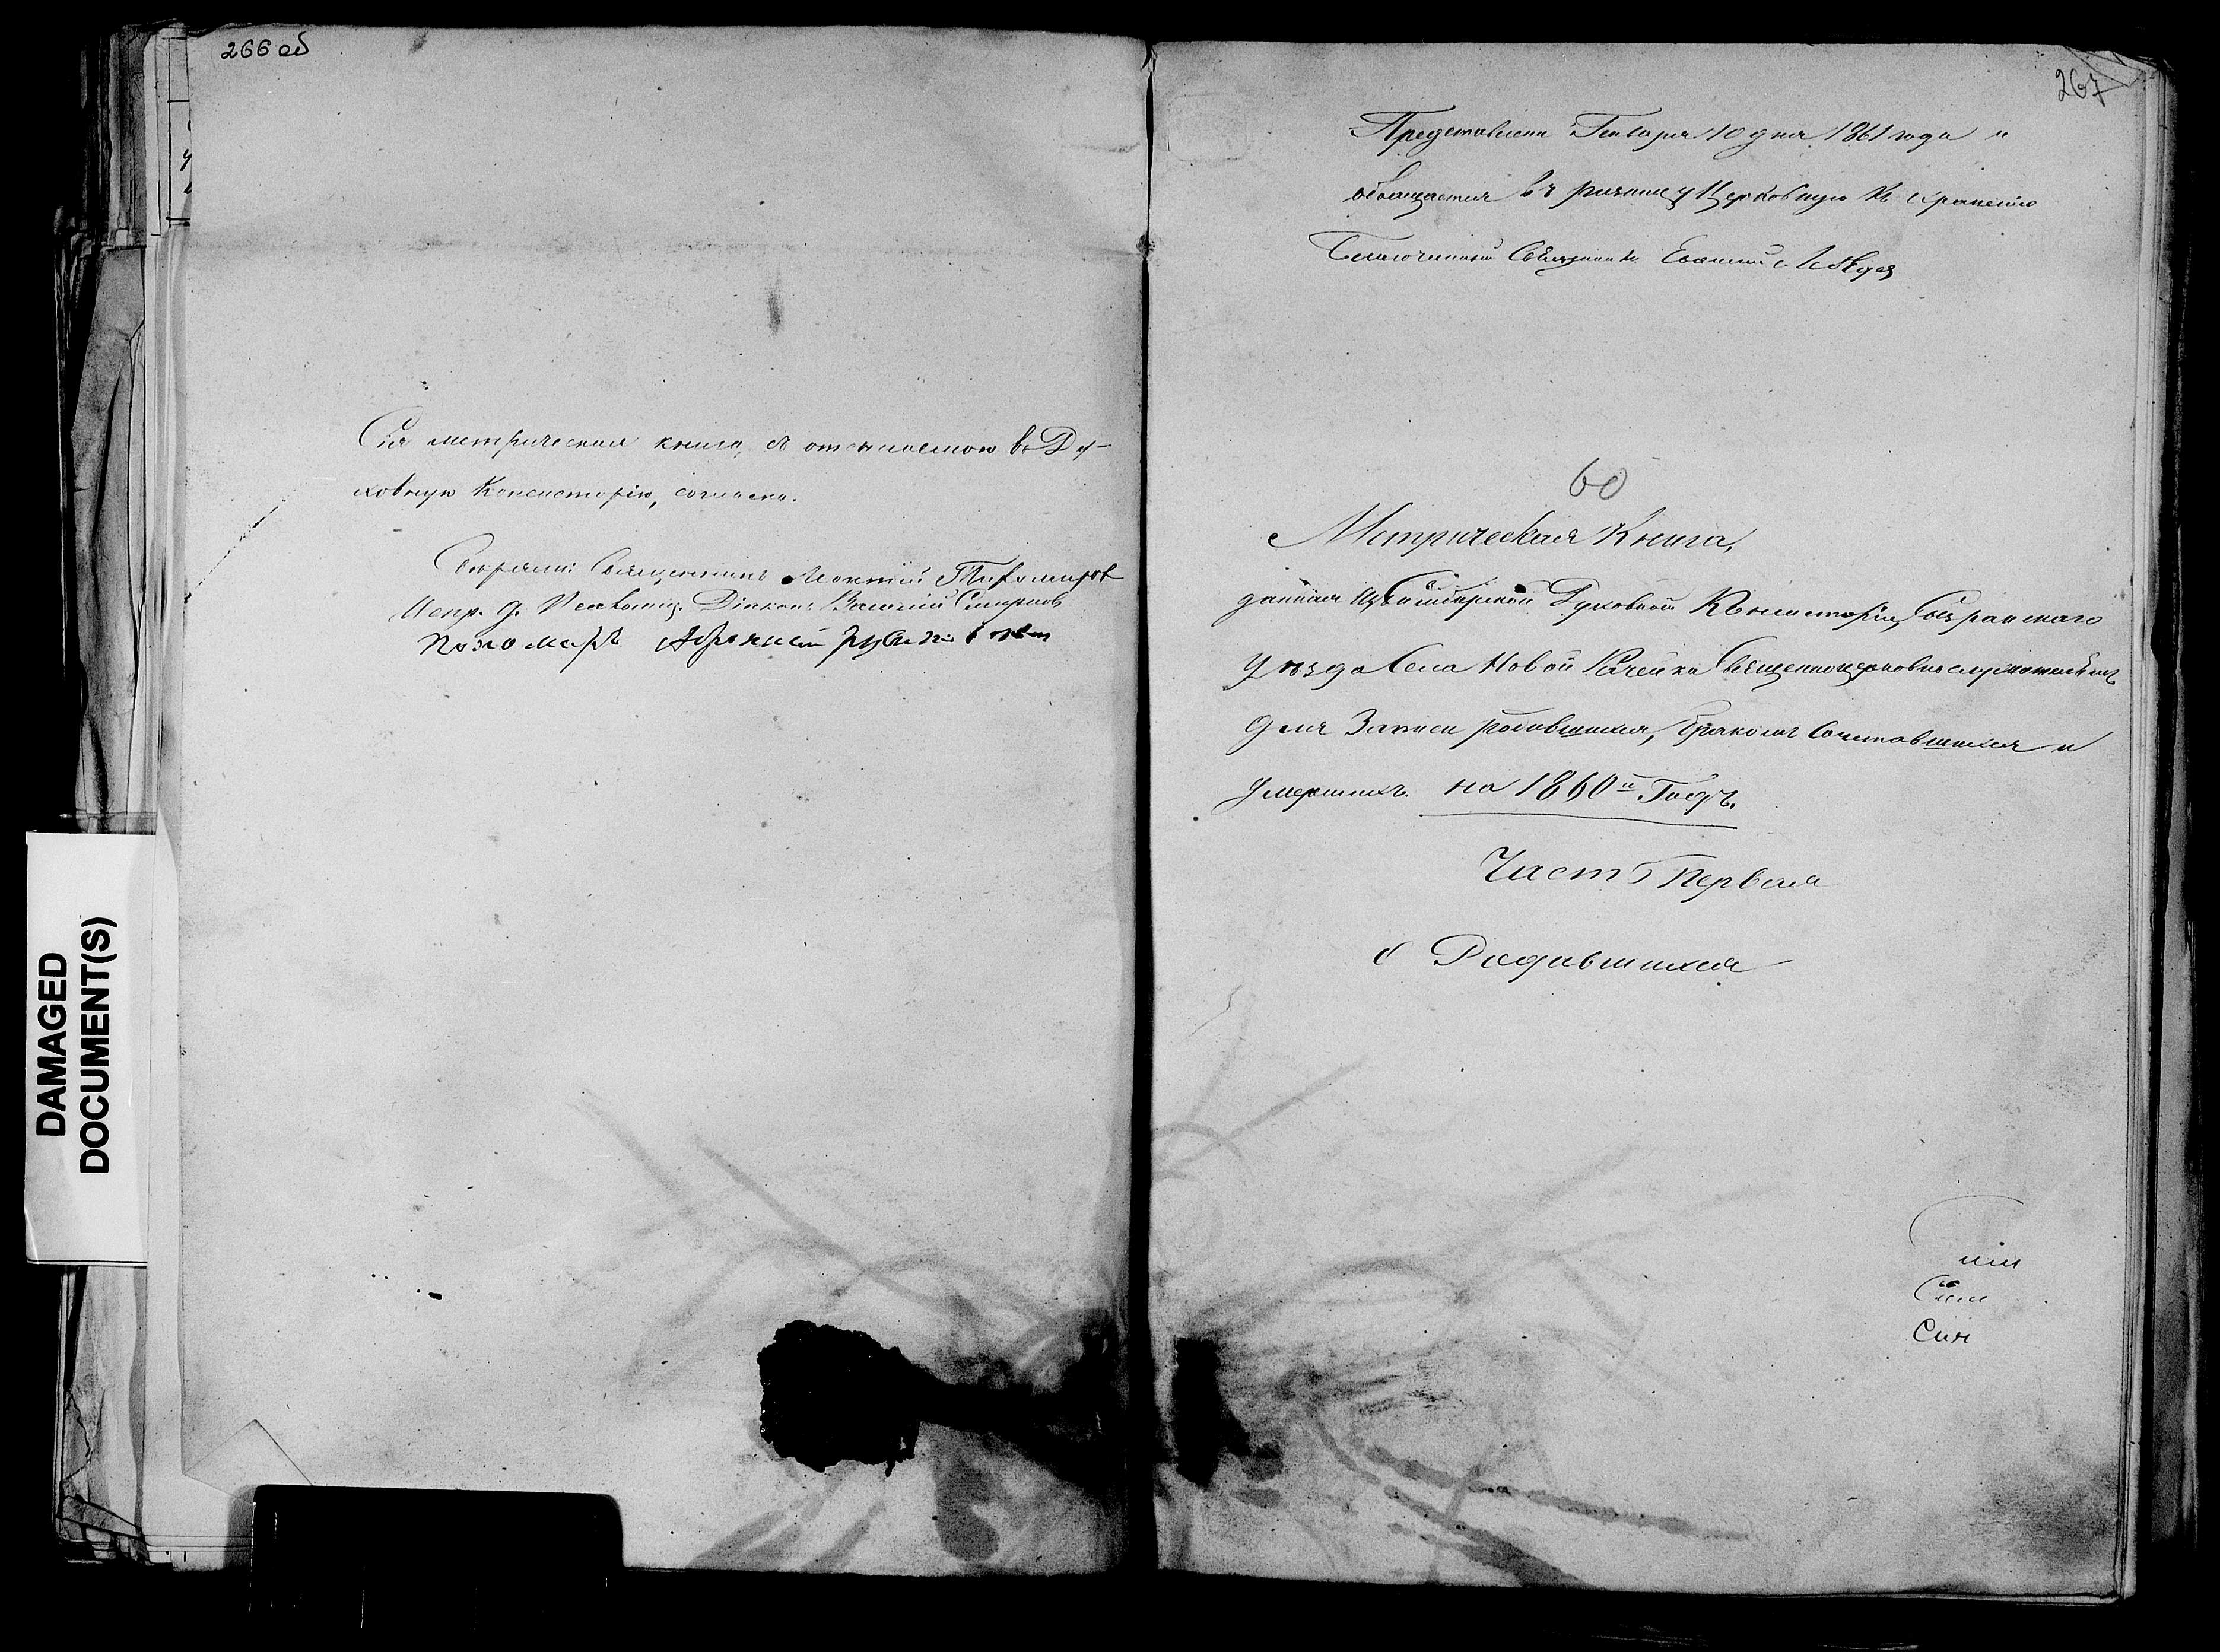 266 об
Сія метрическая книга, съ отсылаемою въ Ду-
ховную Консисторію, согласна.
Священникъ Моккій Тихомиров
Испр. д. Псаломщ. Діаконъ Василій Смирновъ
Пономарь
267
Представлена Генваря 10 дня 1861 года и
обращается въ ризницу Церковную къ храненію
Благочинный Священникъ Евѳимій Лебедев
60
Метрическая Книга,
данная изъ Симбирской Духовной Консисторіи, Сызранскаго
уѣзда Села Новой Рачейки Священноцерковнослужителямъ
для Записи родившихся, бракомъ сочетавшихся и
умершихъ на 1860й Годъ.
Часть Первая
о Родившихся
Сіи
Сія
DAMAGED
DOCUMENT(S)